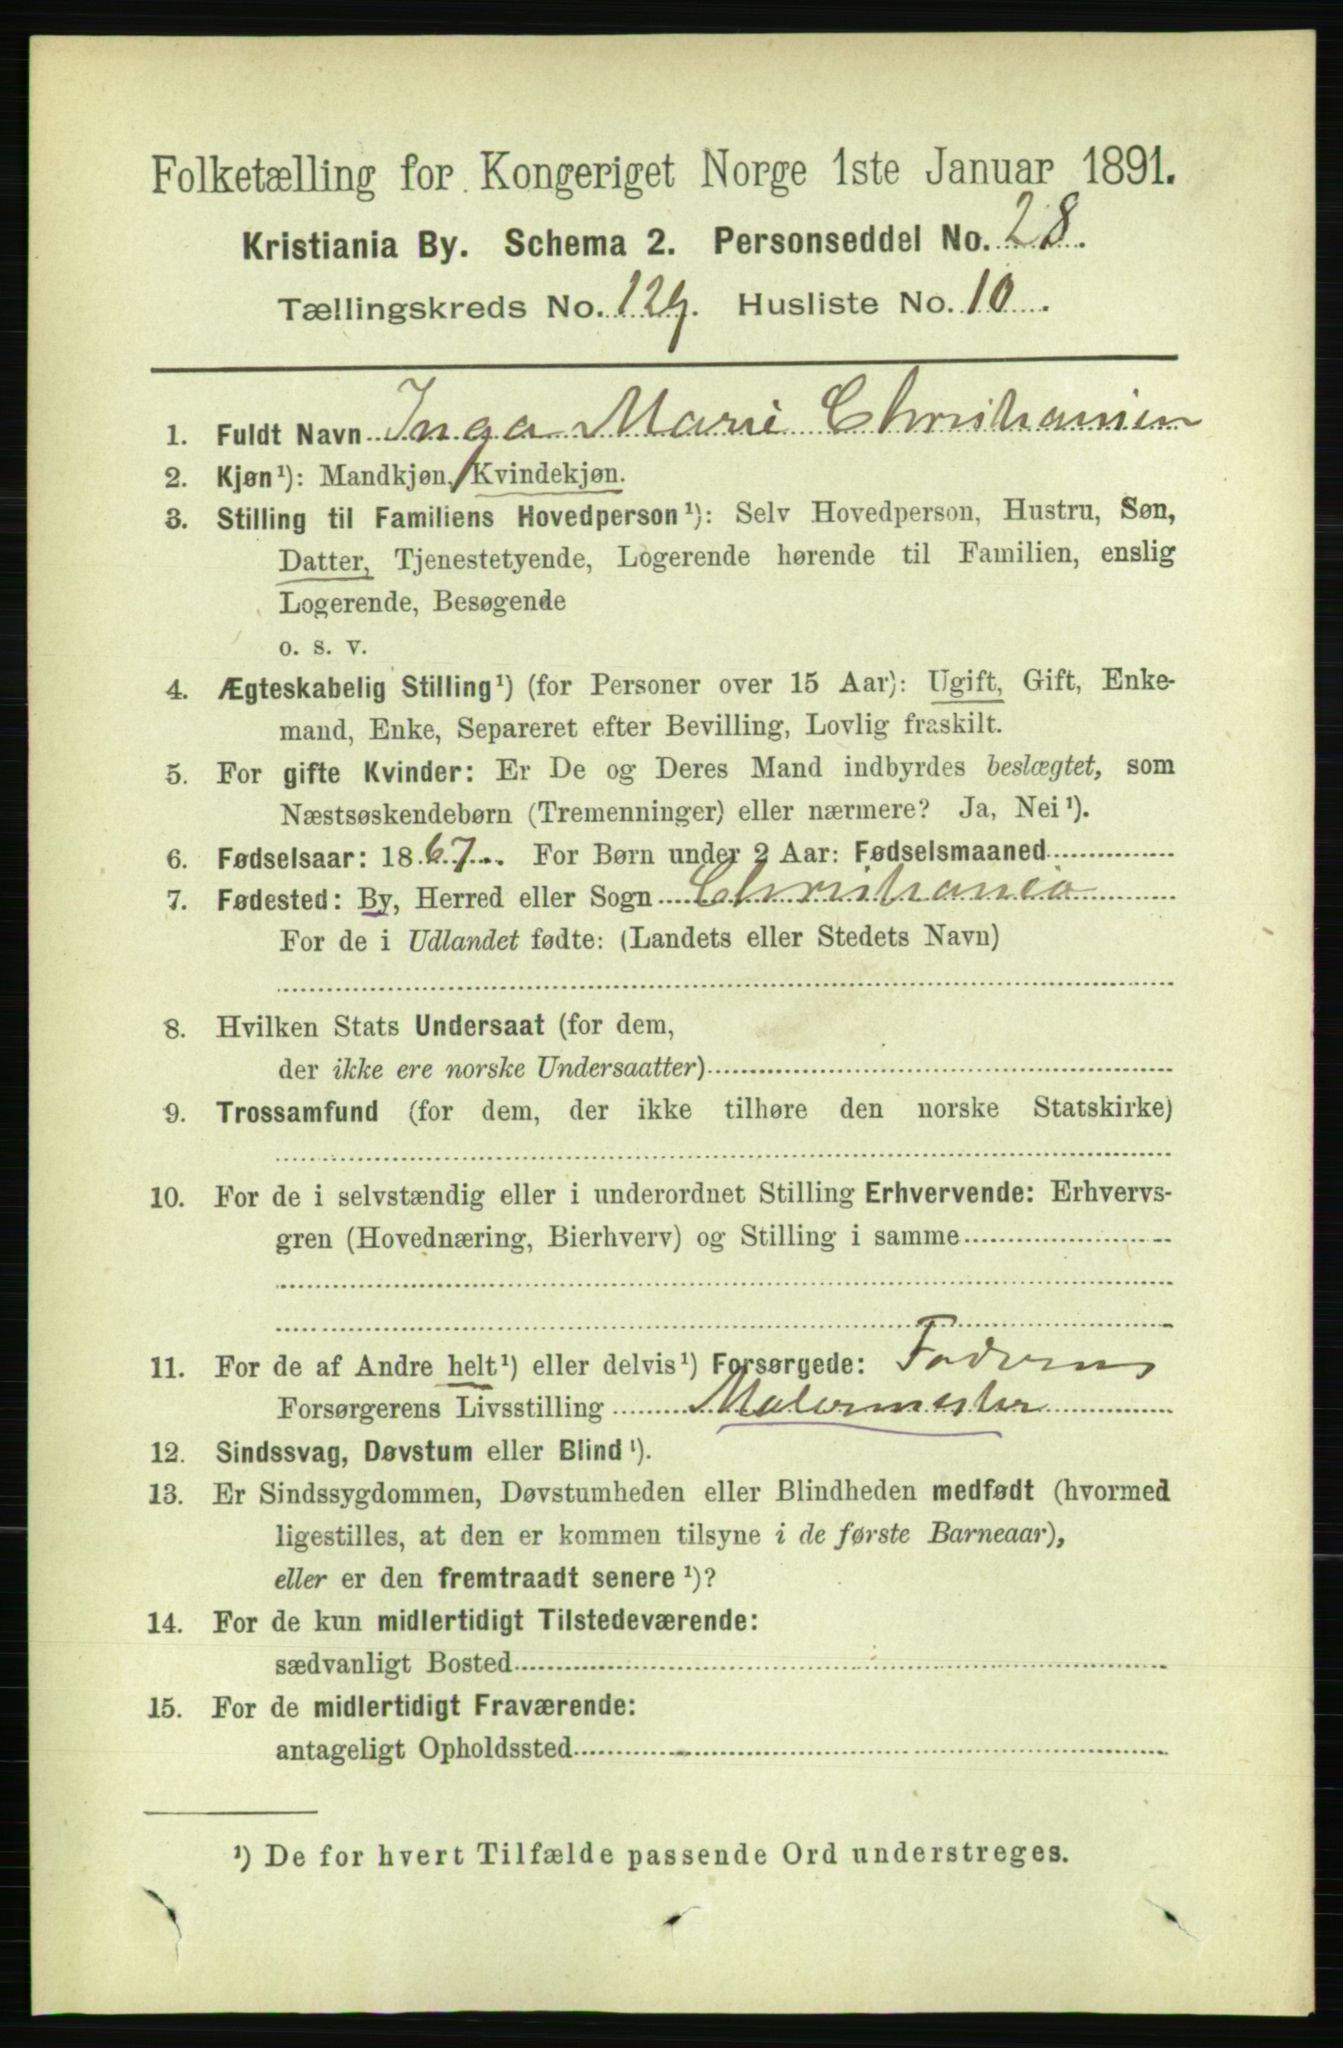 Folketælling for Kongeriget Norge 1ste Januar 1891.
Kristiania By. Schema 2. Personseddel No. 28.
Tællingskreds No. 129. Husliste No. 10.
1. Fuldt Navn Inga Marie Christiansen
2. Kjøn¹): Mandkjøn, Kvindekjøn.
3. Stilling til Familiens Hovedperson¹): Selv Hovedperson, Hustru, Søn,
Datter, Tjenestetyende, Logerende hørende til Familien, enslig
Logerende, Besøgende
o. s. v.
4. Ægteskabelig Stilling¹) (for Personer over 15 Aar): Ugift, Gift, Enke-
mand, Enke, Separeret efter Bevilling, Lovlig fraskilt.
5. For gifte Kvinder: Er De og Deres Mand indbyrdes beslægtet, som
Næstsøskendebørn (Tremenninger) eller nærmere? Ja, Nei¹).
6. Fødselsaar: 1867. For Børn under 2 Aar: Fødselsmaaned
7. Fødested: By, Herred eller Sogn Christiania
For de i Udlandet fødte: (Landets eller Stedets Navn)
8. Hvilken Stats Undersaat (for dem,
der ikke ere norske Undersaatter)
9. Trossamfund (for dem, der ikke tilhøre den norske Statskirke)
10. For de i selvstændig eller i underordnet Stilling Erhvervende: Erhvervs-
gren (Hovednæring, Bierhverv) og Stilling i samme
11. For de af Andre helt¹) eller delvis¹) Forsørgede: Faderens
Forsørgerens Livsstilling Malermester
12. Sindssvag, Døvstum eller Blind¹).
13. Er Sindssygdommen, Døvstumheden eller Blindheden medfødt (hvormed
ligestilles, at den er kommen tilsyne i de første Barneaar),
eller er den fremtraadt senere¹)?
14. For de kun midlertidigt Tilstedeværende:
sædvanligt Bosted
15. For de midlertidigt Fraværende:
antageligt Opholdssted
¹) De for hvert Tilfælde passende Ord understreges.